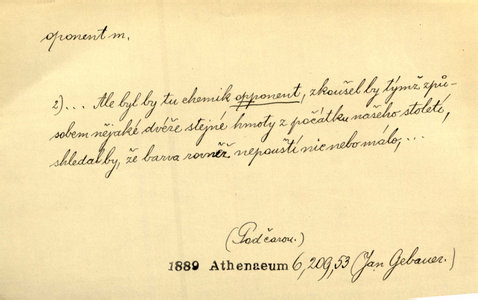 oponent m.
2)... Ale byl by tu chemik opponent, zkoušel by týmž způ-
sobem nějaké dvéře stejné hmoty z počátku našeho století,
shledal by, že barva rovněž nepouští nic nebo málo,...
(Pod čarou.)
1889 Athenaeum 6,209,53 (Jan Gebauer.)